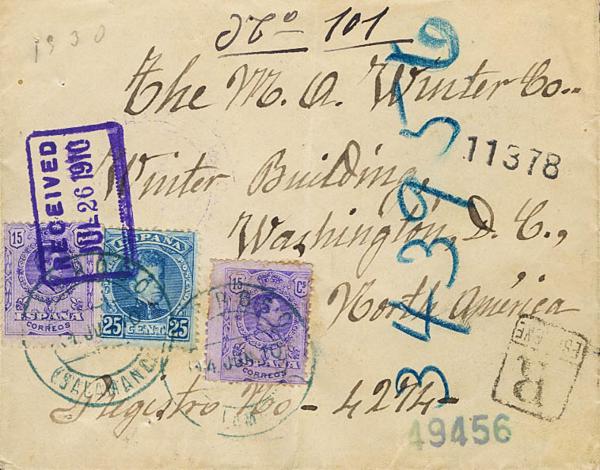 1930
Nº 101
The M. A. Winter Co.
34395
11378
Winter Building,
Washington, D. C.,
North América
RECEIVED
JUL 26 1910
15
ESPAÑA
CORREOS
ESPAÑA
25 CENT. 25
15 Cs
CORREOS
(SALAMANCA)
R
Registro No - 4274-
49456